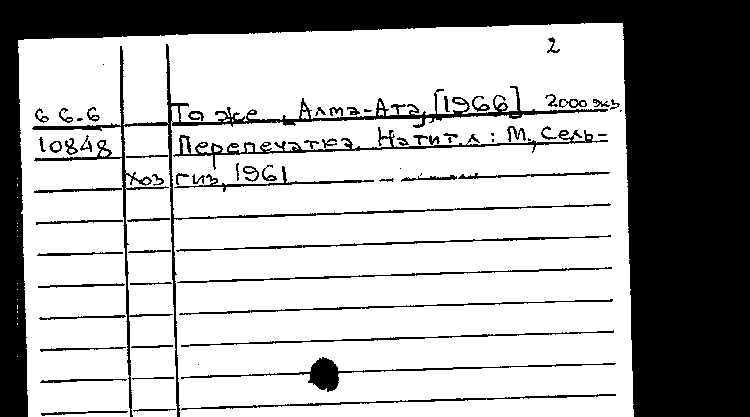 2
66.6 То же. Алма-Ата, [1966]. 2000 экз.
10848 Перепечатка. На тит. л.: М., Сель-
хозгиз, 1961